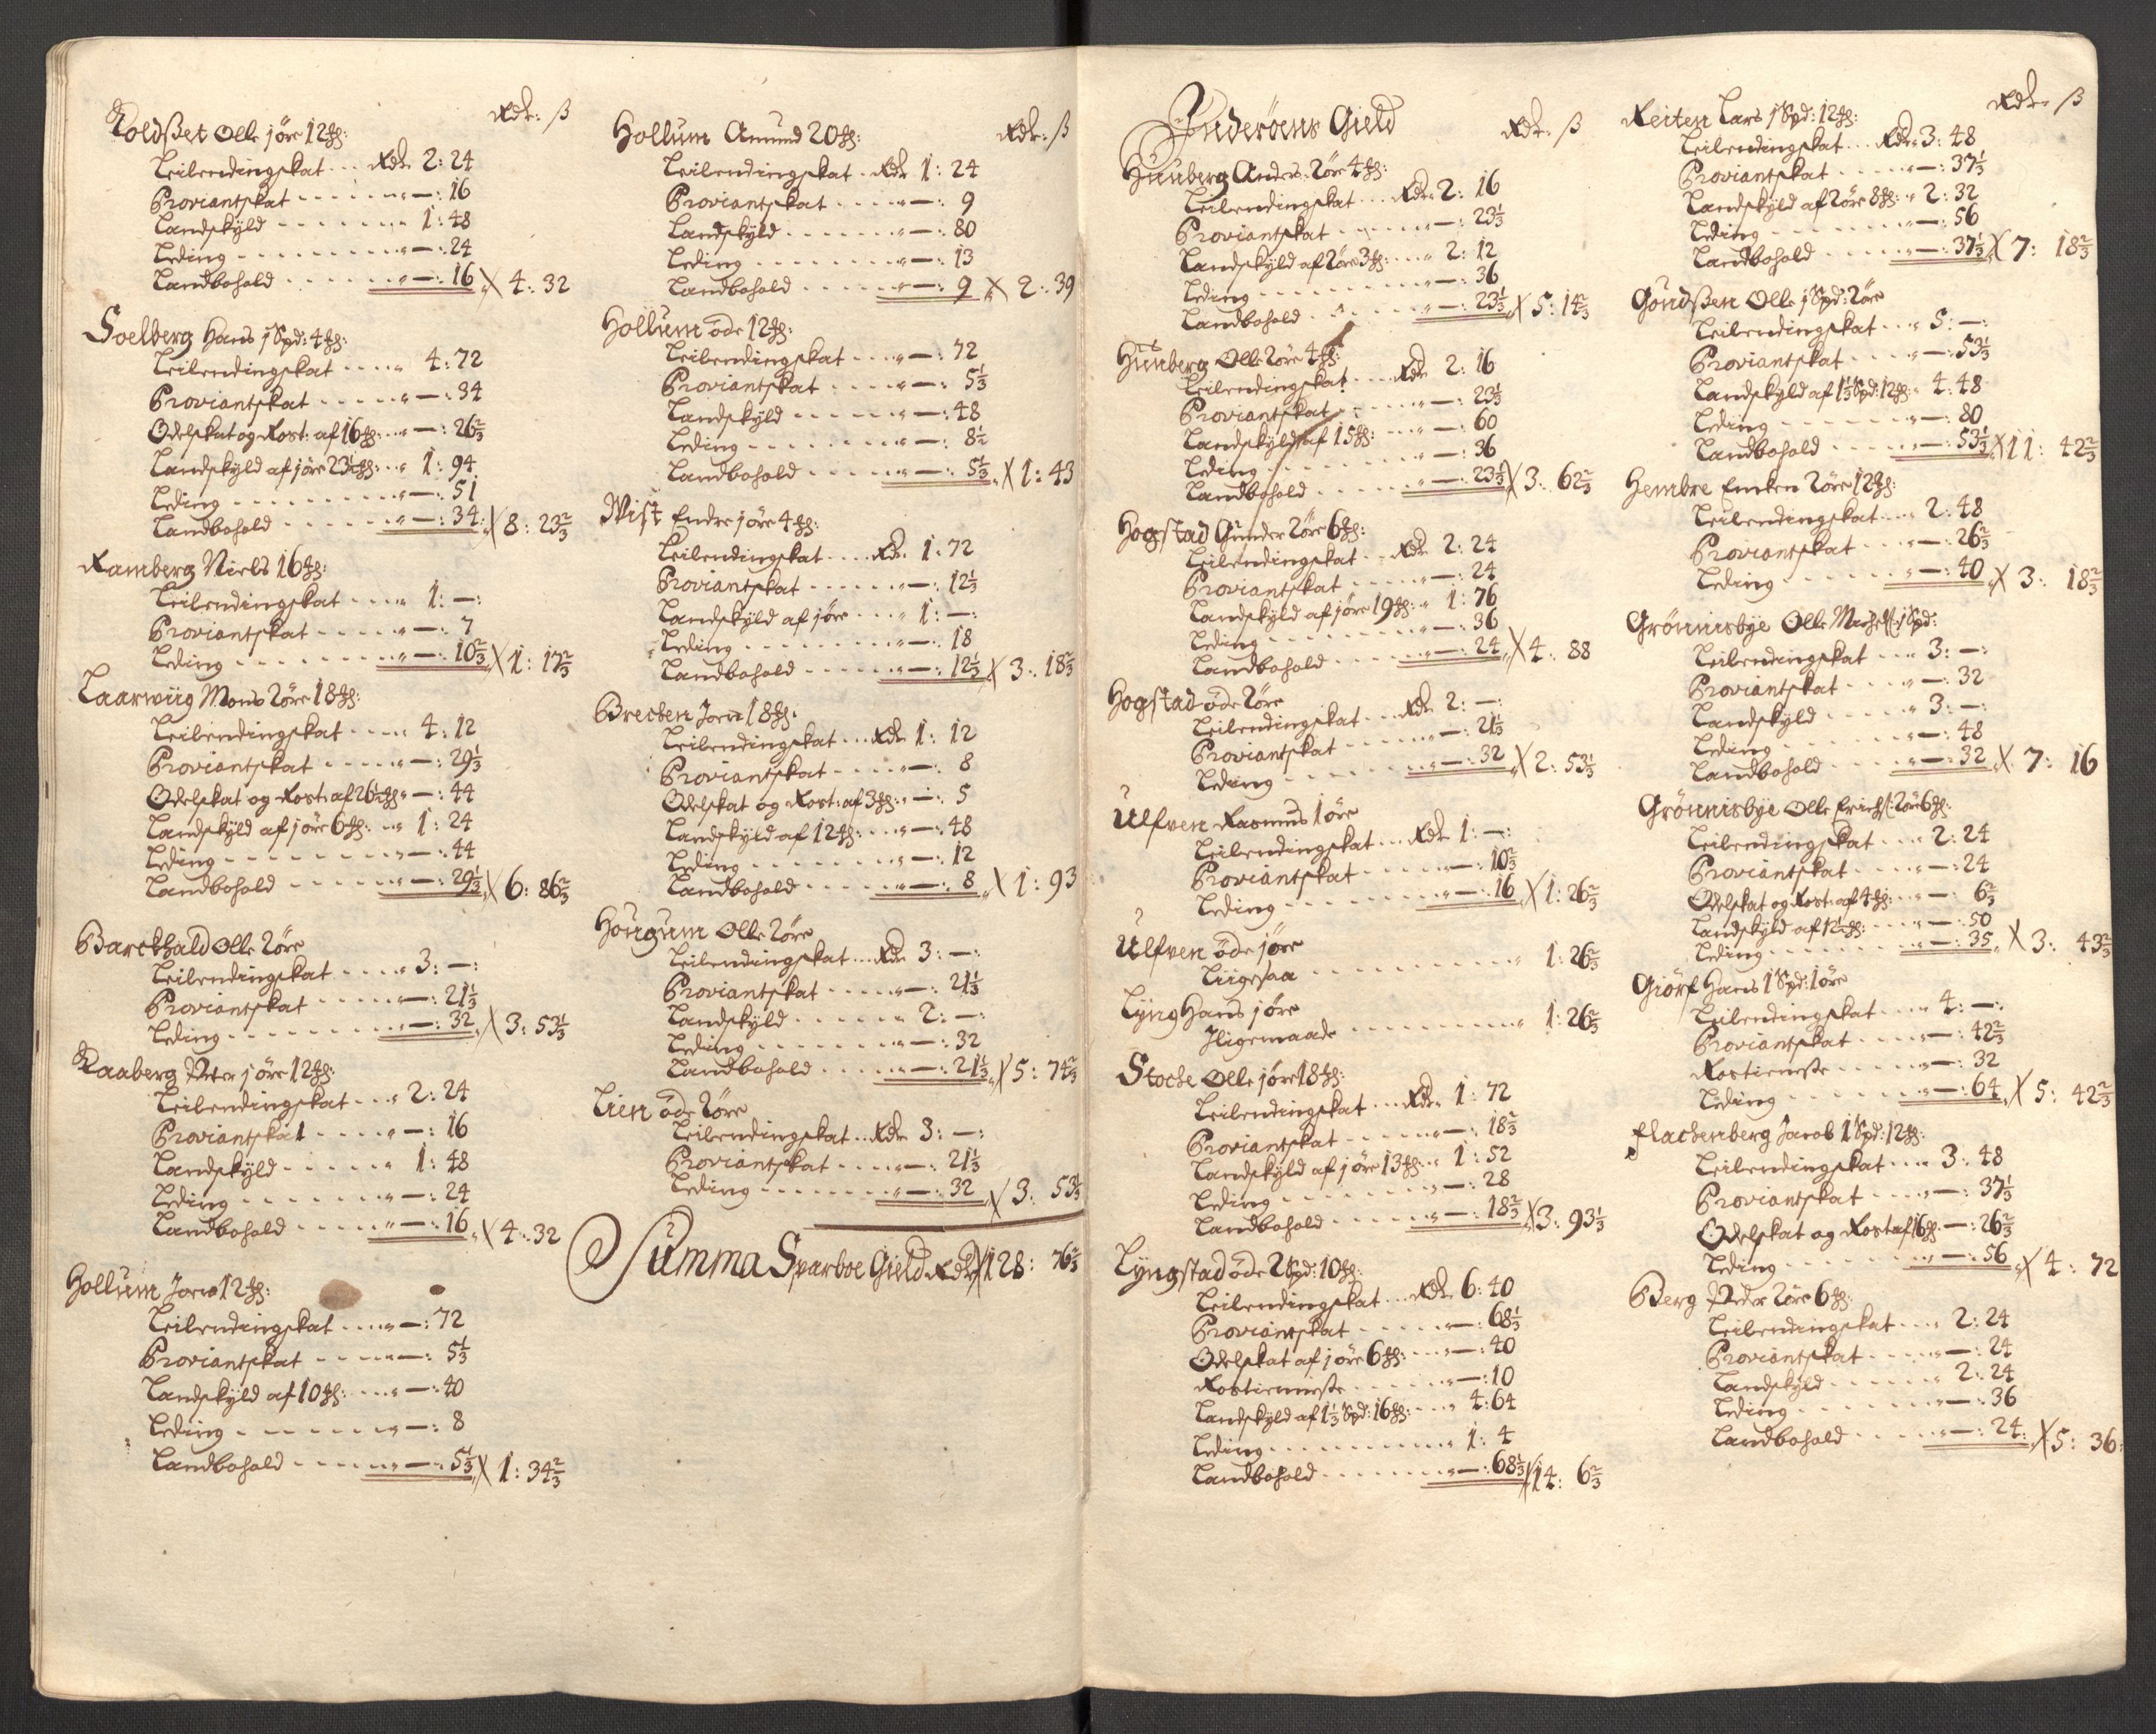 Rdr: ß
Koldßet Olle jøre 12 ₰:
Leilendingskat ... Rdr 2: 24
Proviantskat ... — : 16
Landskÿld ... 1: 48
Leding ... — : 24
Landbohold ... — : 16 4: 32
Soelberg Hans j Spd: 4 ₰:
Leilendingskat ... 4: 72
Proviantskat ... — : 34
Odelskat og Rost: af 16 ₰: — : 26⅔
Landskÿld af jøre 23½ ₰: 1: 94
Leding ... — : 51
Landbohold ... — : 34: 8: 23⅔
Ramberg Niels 16 ₰:
Leilendingskat ... 1: — :
Proviantskat ... — : 7
Leding ... — : 10⅔ 1: 17⅔
Laarwiig Mons 2øre 18 ₰:
Leilendingskat ... 4: 12
Proviantskat ... — : 29⅓
Odelskat og Rost: af 26½ ₰ — : 44
Landskÿld af jøre 6 ₰: 1: 24
Leding ... — : 44
Landbohold ... — : 29⅓ 6: 86⅔
Barckhald Olle 2øre
Leilendingskat ... 3: — :
Proviantskat ... — : 21⅓
Leding ... — : 32 3: 53⅓
Kaaberg Peter jøre 12 ₰:
Leilendingskat ... 2: 24
Proviantskat ... — : 16
Landskÿld ... 1: 48
Leding ... — : 24
Landbohold ... — : 16 4: 32
Hollum Joen 12 ₰:
Leilendingskat ... — : 72
Proviantskat ... — : 5⅓
Landskÿld af 10 ₰: — : 40
Leding ... — : 8
Landbohold ... — : 5⅓ 1: 34⅔
Rdr: ß
Hollum Amund 20 ₰:
Leilendingskat . Rdr 1: 24
Proviantskat ... — : 9
Landskÿld ... — : 80
Leding ... — : 13
Landbohold ... — : 9 2: 39
Hollum öde 12 ₰:
Leilendingskat ... — : 72
Proviantskat ... — : 5⅓
Landskÿld ... — : 48
Leding ... — : 8½
Landbohold ... — : 5⅓ 1: 43
Wist Endre jøre 4 ₰:
Leilendingskat ... Rdr. 1: 72
Proviantskat ... — : 12⅓
Landskÿld af jøre ... 1: — :
Leding ... — : 18
Landbohold ... — : 12⅓ 3: 18⅔
Brecken Joen 18 ₰:
Leilendingskat ... Rdr 1: 12
Proviantskat ... — : 8
Odelskat og Rost: af 3 ₰: — : 5
Landskÿld af 12 ₰: ... — : 48
Leding ... — : 12
Landbohold ... — : 8 1: 93
Hougum Olle 2øre
Leilendingskat ... Rdr 3: — :
Proviantskat ... — : 21⅓
Landskÿld ... 2: — :
Leding ... — : 32
Landbohold ... — : 21⅓ 5: 74⅔
Lien öde 2øre
Leilendingskat .. Rdr 3: — :
Proviantskat ... — : 21⅓
Leding ... — : 32 3: 53⅓
Summa Sparboe Gield Rdr 128: 76⅔
Inderøens Gield
Rdr: ß
Huuberg Anders 2øre 4 ₰:
Leilendingskat ... Rdr 2: 16
Proviantskat ... — : 23⅓
Landskÿld af 2øre 3 ₰: 2: 12
Leding ... — : 36
Landbohold ... — : 23⅓ 5: 14⅔
Huuberg Olle 2øre 4 ₰:
Leilendingskat ... Rdr 2: 16
Proviantskat ... — : 23⅓
Landskÿld af 15 ₰: ... — : 60
Leding ... — : 36
Landbohold ... — : 23⅓ 3: 62⅔
Hogstad Gunder 2øre 6 ₰:
Leilendingskat ... Rdr 2: 24
Proviantskat ... — : 24
Landskÿld af jøre 19 ₰: 1: 76
Leding ... — : 36
Landbohold ... — : 24 4: 88
Hogstad öde 2øre
Leilendingskat ... Rdr 2: — :
Proviantskat ... — : 21⅓
Leding ... — : 32 2: 53⅓
Ulfven Rasmus 1 øre
Leilendingskat ... Rdr 1: — :
Proviantskat ... — : 10⅔
Leding ... — : 16 1: 26⅔
Ulfven öde jøre
Liigesaa ... 1: 26⅔
Lyng Hans jøre
Iligemaade ... 1: 26⅔
Stoche Olle jøre 18 ₰:
Leilendingskat ... Rdr 1: 72
Proviantskat ... — : 18⅔
Landskÿld af jøre 13 ₰: 1: 52
Leding ... — : 28
Landbohold ... — : 18⅔ 3: 93⅓
Lyngstad öde 2 Spd: 10 ₰:
Leilendingskat ... Rdr 6: 40
Proviantskat ... — : 68⅓
Odelskat af jøre 6 ₰: ... — : 40
Rostieniste ... — : 10
Landskÿld af 1⅓ Spd: 16 ₰: 4: 64
Leding ... 1: 4
Landbohold ... — : 68⅓ 14: 6⅔
Rdr: ß
Reiten Lars j Spd: 12 ₰:
Leilendingskat ... Rdr 3: 48
Proviantskat ... — : 37⅓
Landskÿld af 2øre 8 ₰: 2: 32
Leding ... — : 56
Landbohold ... — : 37⅓ 7: 18⅔
Goudßen Olle j Spd: 2øre
Leilendingskat ... 5: — :
Proviantskat ... — : 53⅓
Landskÿld af 1⅓ Spd: 12 ₰: 4: 48
Leding ... — : 80
Landbohold ... — : 53⅓ 11: 42⅔
Hembre Encken 2øre 12 ₰:
Leilendingskat ... 2: 48
Proviantskat ... — : 26⅔
Leding ... — : 40 3: 18⅔
Grönnisbÿe Olle Michels: j Spd:
Leilendingskat ... 3: — :
Proviantskat ... — : 32
Landskÿld ... 3: — :
Leding ... — : 48
Landbohold ... — : 32 7: 16
Grönnisbÿe Olle Erichs: 2øre 6 ₰:
Leilendingskat ... 2: 24
Proviantskat ... — : 24
Odelskat og Rost: af 4 ₰: — : 6⅔
Landskÿld af 12½ ₰: ... — : 50
Leding ... — : 35 3: 43⅔
Giörf Hans 1 Spd: 1 øre
Leilendingskat ... 4: — :
Proviantskat ... — : 42⅔
Rostieniste ... — : 32
Leding ... — : 64 5: 42⅔
Flachenberg Jacob 1 Spd: 12 ₰:
Leilendingskat ... 3: 48
Proviantskat ... — : 37⅓
Odelskat og Rost af 16 ₰: — : 26⅔
Leding ... — : 56 4: 72
Berg Peder 2øre 6 ₰:
Leilendingskat ... 2: 24
Proviantskat ... — : 24
Landskÿld ... 2: 24
Leding ... — : 36
Landbohold ... — : 24: 5: 36: